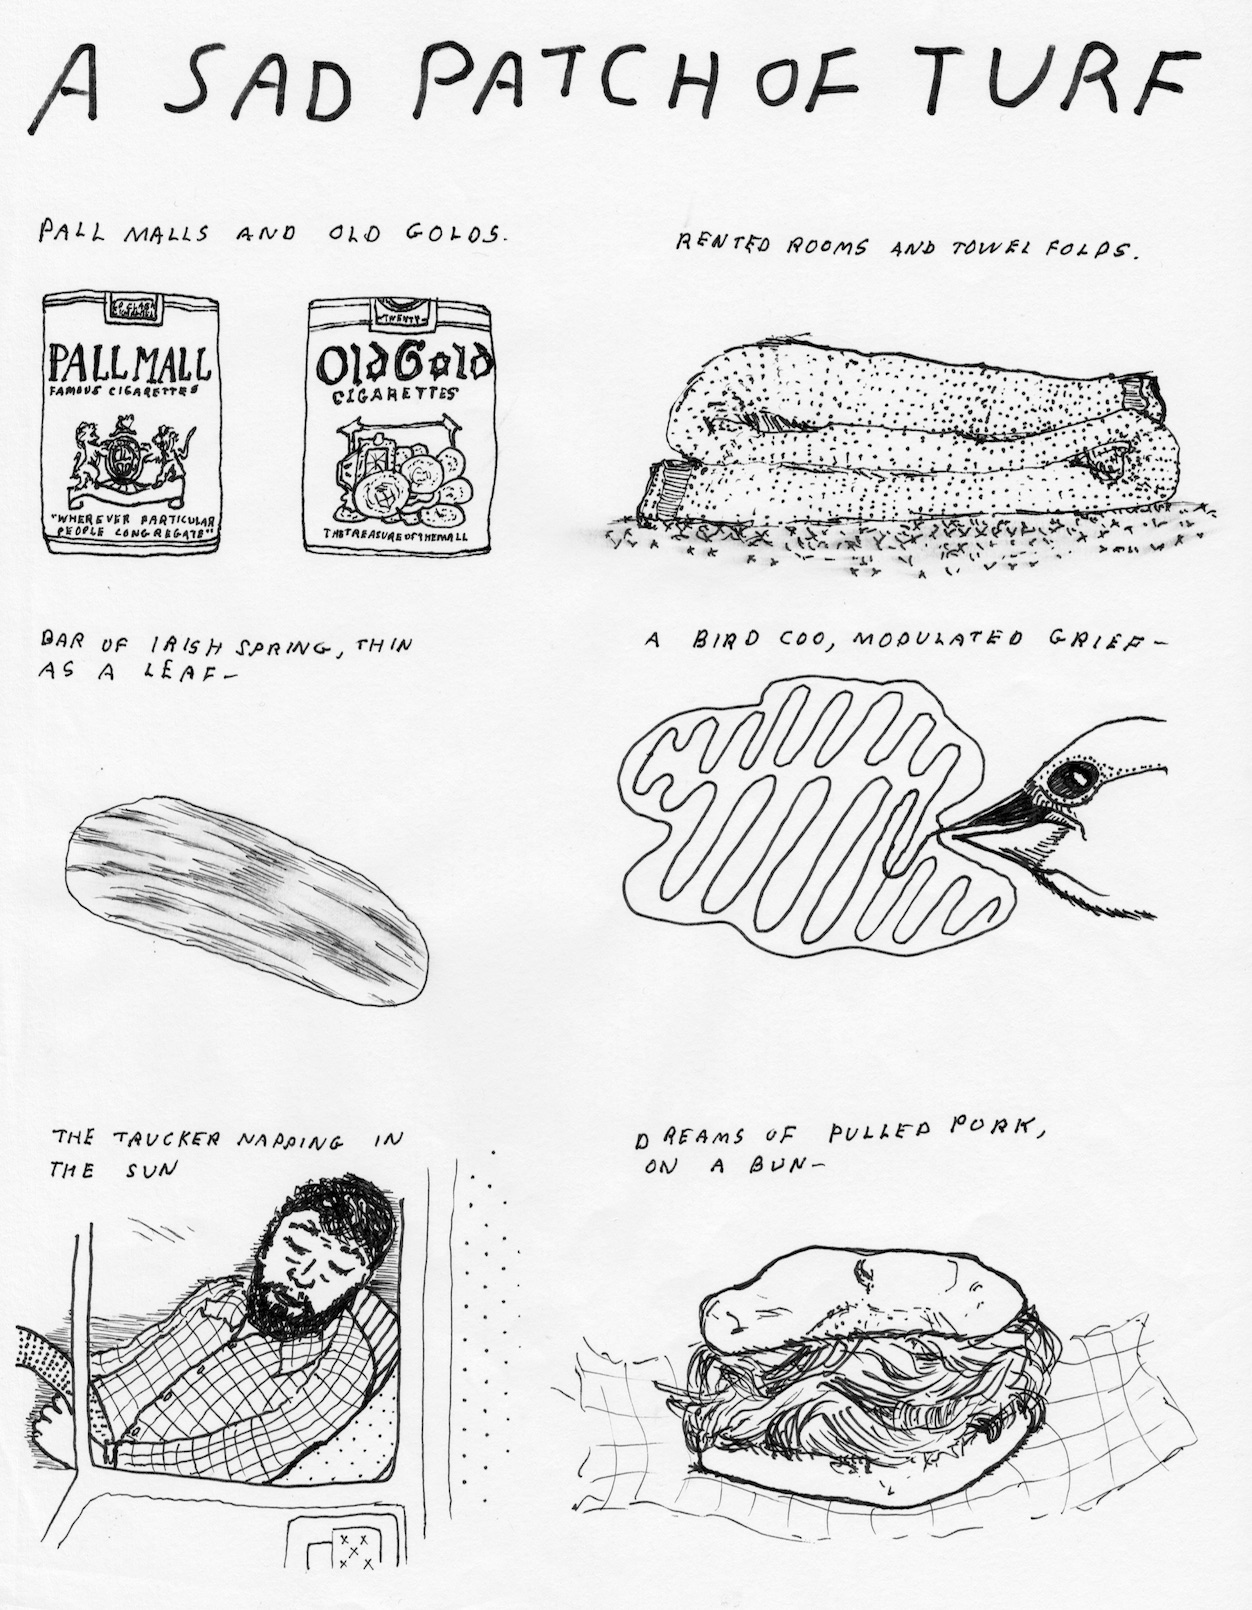 A SAD PATCH OF TURF
PALL MALLS AND OLD GOLDS.
RENTED ROOMS AND TOWEL FOLDS.
PALL MALL
FAMOUS CIGARETTES
"WHEREVER PARTICULAR
PEOPLE CONGREGATE"
TWENTY
Old Gold
CIGARETTES
THE TREASURE OF THEM ALL
BAR OF IRISH SPRING, THIN
AS A LEAF-
A BIRD COO, MODULATED GRIEF-
THE TRUCKER NAPPING IN
THE SUN
DREAMS OF PULLED PORK,
ON A BUN-